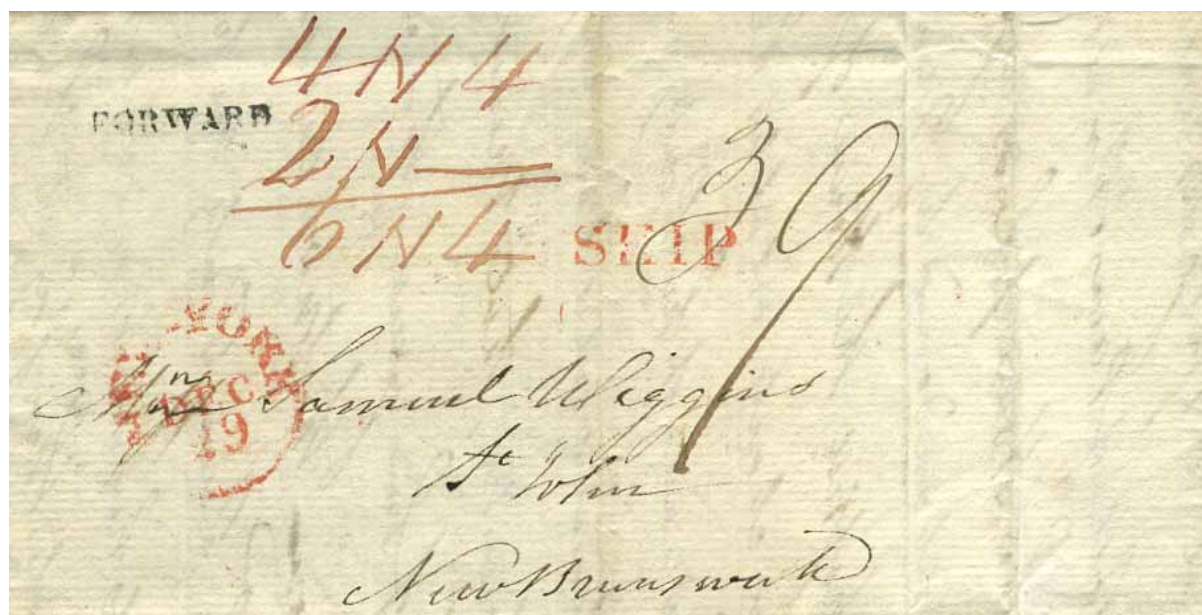 4N4
FORWARD
2N—
6N4
SHIP
39
YORK
DEC
19
Mr. Samuel Wiggins
St John
New Brunswick